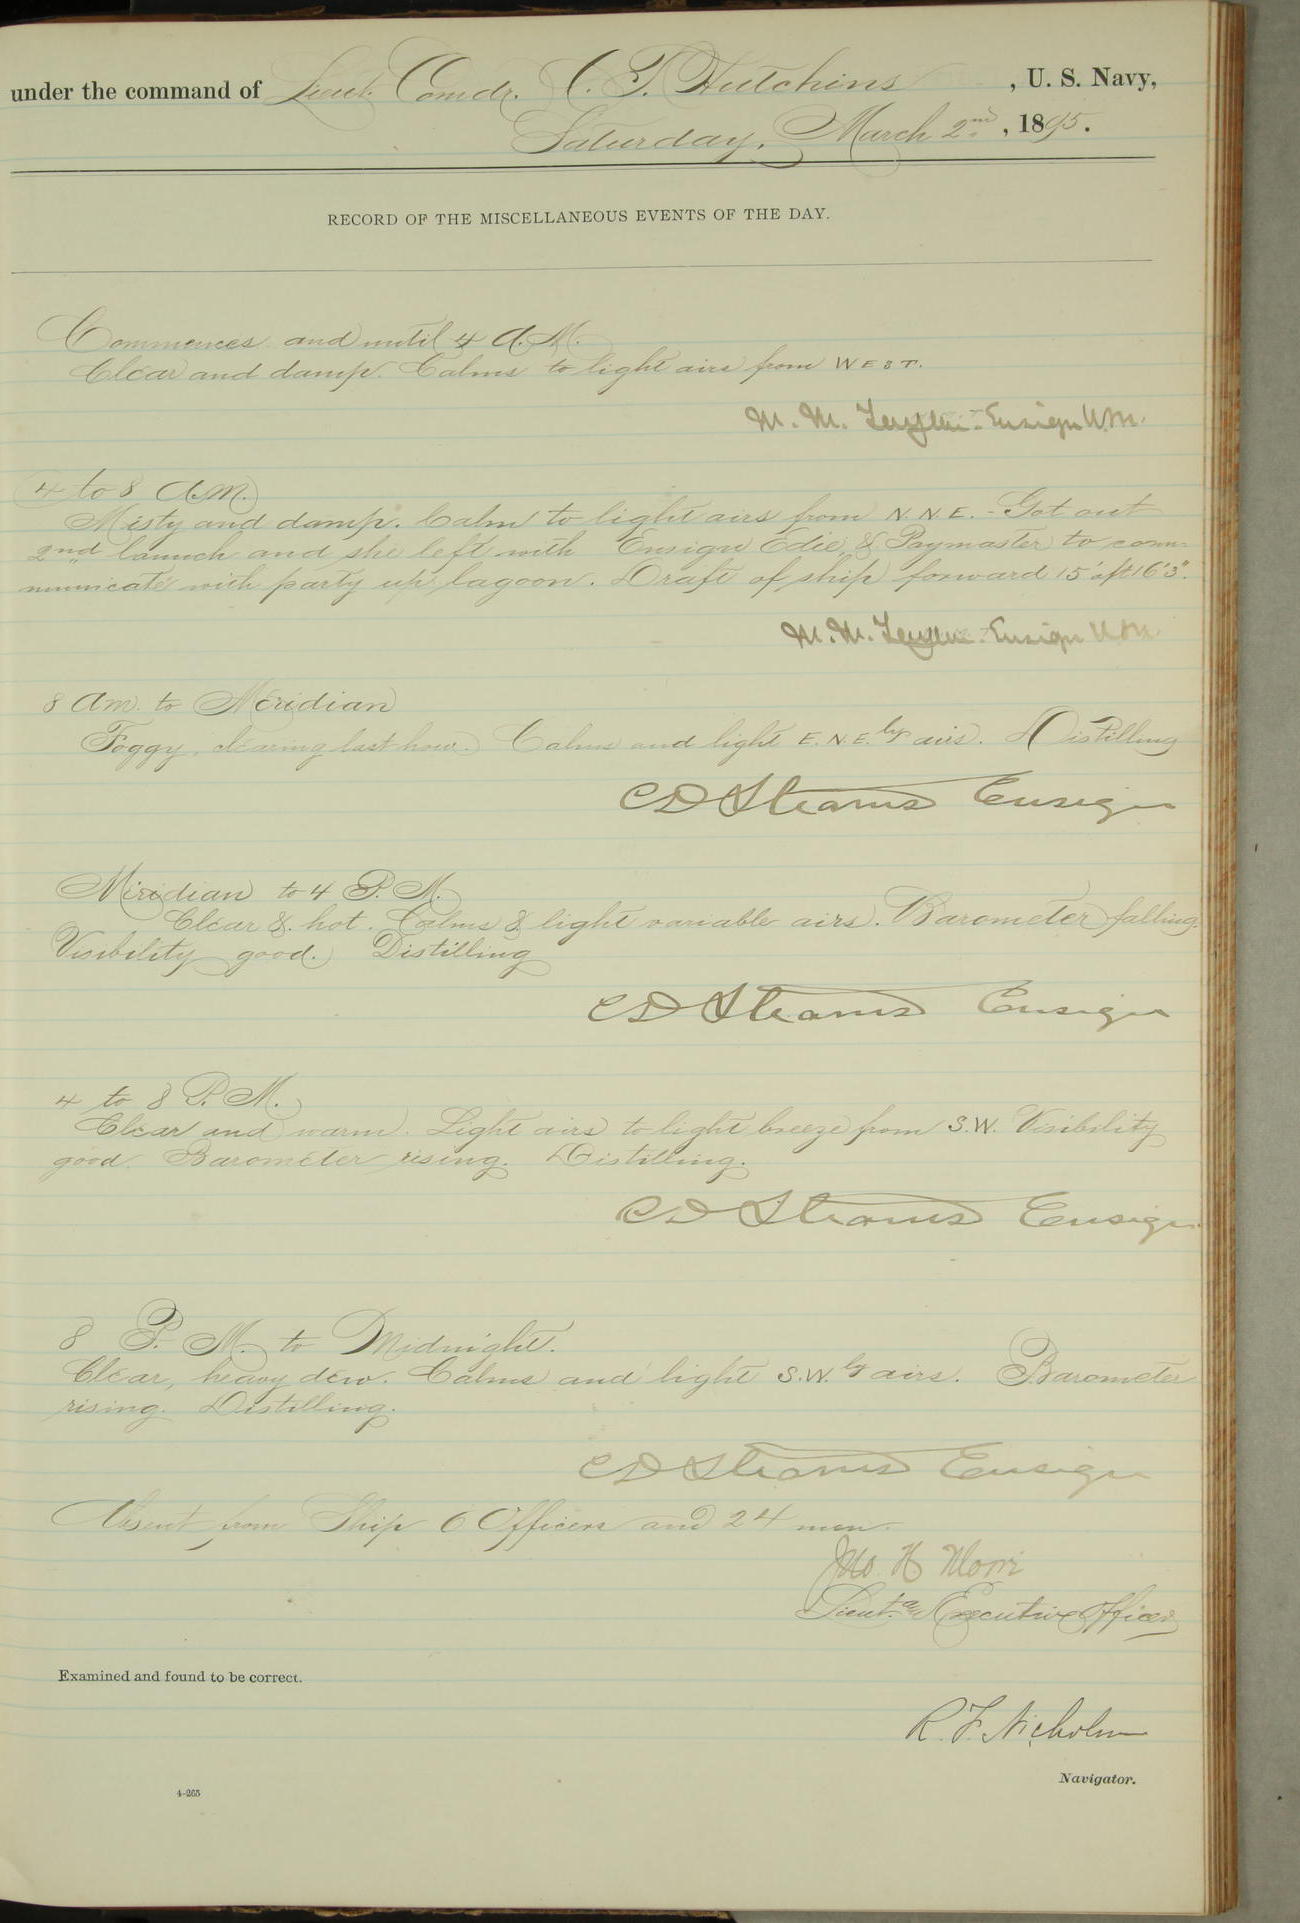 under the command of Lieut. Comdr. C. T. Hutchins , U. S. Navy,
Saturday, March 2nd , 1895.
RECORD OF THE MISCELLANEOUS EVENTS OF THE DAY.
Commences and until 4 A.M.
Clear and damp. Calms to light airs from WEST.
M. M. Ensign U.S.N.
4 to 8 A.M.
Misty and damp. Calm to light airs from N.N.E. - Got out
2nd launch and she left with Ensign Edie & Paymaster to com-
municate with party up lagoon. Draft of ship forward 15' aft 16'3".
M. M. Ensign U.S.N.
8 A.M. to Meridian
Foggy, clearing last hour. Calms and light E.N.E.ly airs. Distilling
C D Stearns Ensign
Meridian to 4 P.M.
Clear & hot. Calms & light variable airs. Barometer falling.
Visibility good. Distilling
C D Stearns Ensign
4 to 8 P.M.
Clear and warm. Light airs to light breeze from S.W. Visibility
good. Barometer rising. Distilling.
C D Stearns Ensign
8 P. M. to Midnight.
Clear, heavy dew. Calms and light S.W.ly airs. Barometer
rising. Distilling.
C D Stearns Ensign
Absent from Ship 6 Officers and 24 men.
Jno. H Moore
Lieut. & Executive Officer
Examined and found to be correct.
R. F. Nicholson
Navigator.
4-265